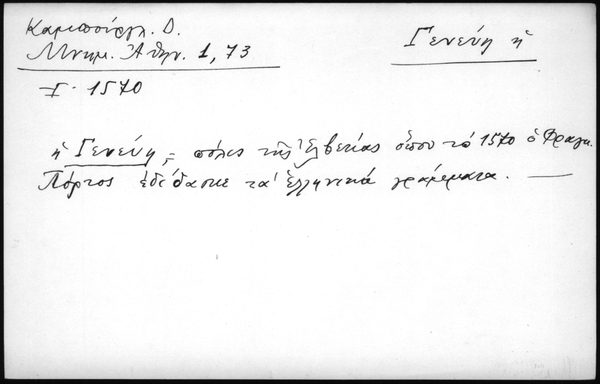 Καμπούργλ. Δ.
Μνημ. Ἀθην. 1, 73
Γενεύη ἡ
I. 1570
ἡ Γενεύη, = πόλις τῆς Ἑλβετίας ὅπου τὸ 1570 ὁ Φραγκ.
Πόρτος ἐδίδασκε τὰ ἑλληνικὰ γράμματα. —